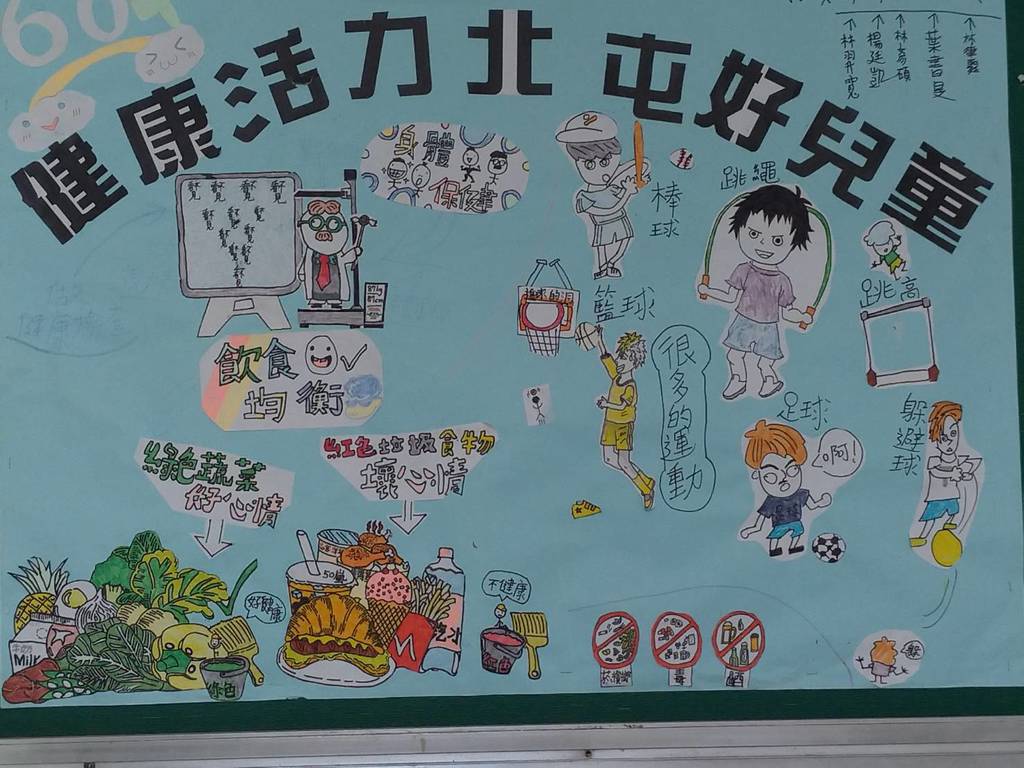 60
健康活力北屯好兒童
林羿寬
楊廷凱
身體
保健
棒球
跳繩
跳高
籃球
飲食
均衡
很多的運動
足球
啊!
躲避球
綠色蔬菜
好心情
紅色垃圾食物
壞心情
好健康
不健康
50嵐
汽水
牛奶
Milk
綠色
紅色
毒
酒